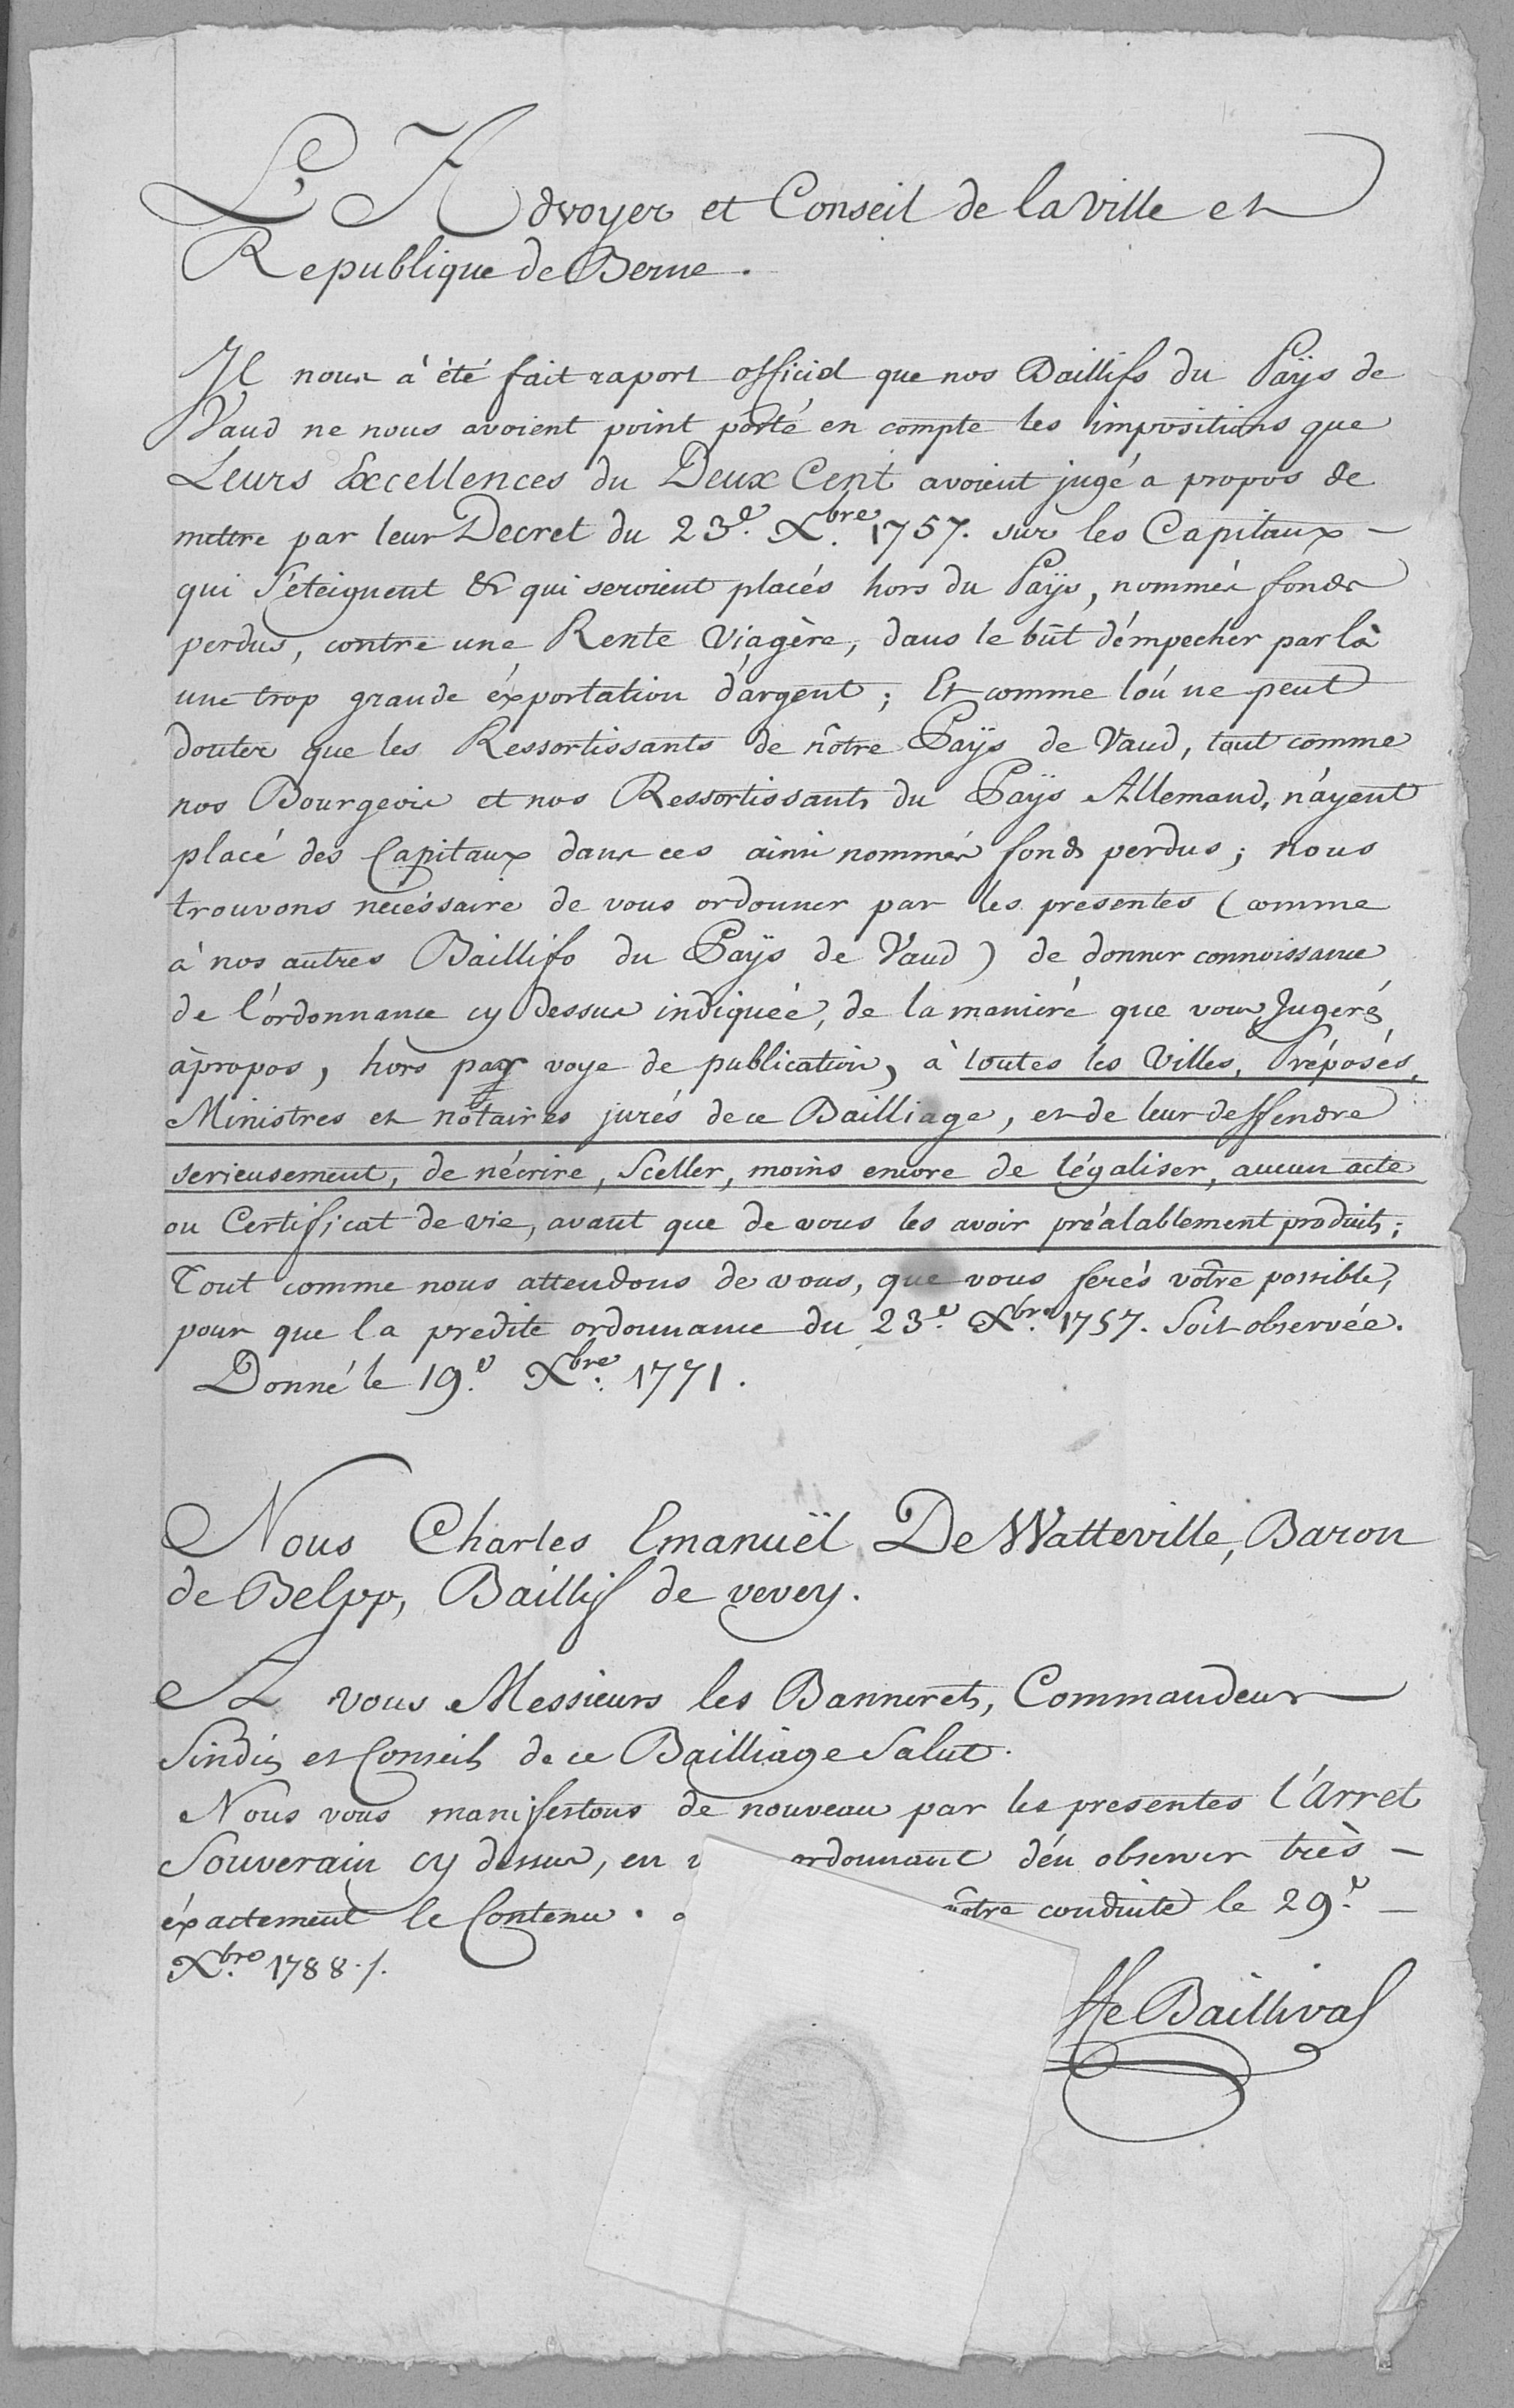 L'Advoyer et Conseil de la Ville et
Republique de Berne.
Il nous à été fait raport officiel que nos Baillifs du Païs de
Vaud ne nous avoient point porté en compte les impositions que
Leurs Excellences du Deux Cent avoient jugé a propos de
mettre par leur Decret du 23e. Xbre. 1757. sur les Capitaux -
qui s'éteignent & qui seroient placés hors du Païs, nommés fonds
perdus, contre une Rente Viagère, dans le bût d'émpecher par là
une trop grande éxportation d'argent; Et comme l'on ne peut
douter que les Ressortissants de nôtre Païs de Vaud, tout comme
nos Bourgeois et nos Ressortissants du Païs Allemand, n'ayent
placé des Capitaux dans ces ainsi nommés fonds perdus; nous
trouvons necéssaire de vous ordonner par les presentes (comme
à nos autres Baillifs du Païs de Vaud) de donner connoissance
de l'ordonnance cy dessus indiquée, de la maniére que vous Jugerés
àpropos, hors par voye de publication, à toutes les Villes, Préposés,
Ministres et nôtaires jurés de ce Bailliage, et de leur deffendre
serieusement, de n'écrire, Sceller, moins encore de légaliser, aucun acte
ou Certificat de vie, avant que de vous les avoir préalablement produits;
Tout comme nous attendons de vous, que vous ferés vôtre possible,
pour que la predite ordonnance du 23e. Xbre. 1757. Soit observée.
Donné le 19e. Xbre. 1771.
Nous Charles Emanuël De Watteville, Baron
de Belpp, Baillif de vevey.
A vous Messieurs les Bannerets, Commandeur
Sindics et Conseils de ce Bailliage Salut.
Nous vous manifestons de nouveau par les presentes l'Arret
Souverain cy dessus, en ordonnant d'en observer très -
éxactement le Contenu. nôtre conduite le 29e. -
Xbre. 1788./.
Baillival